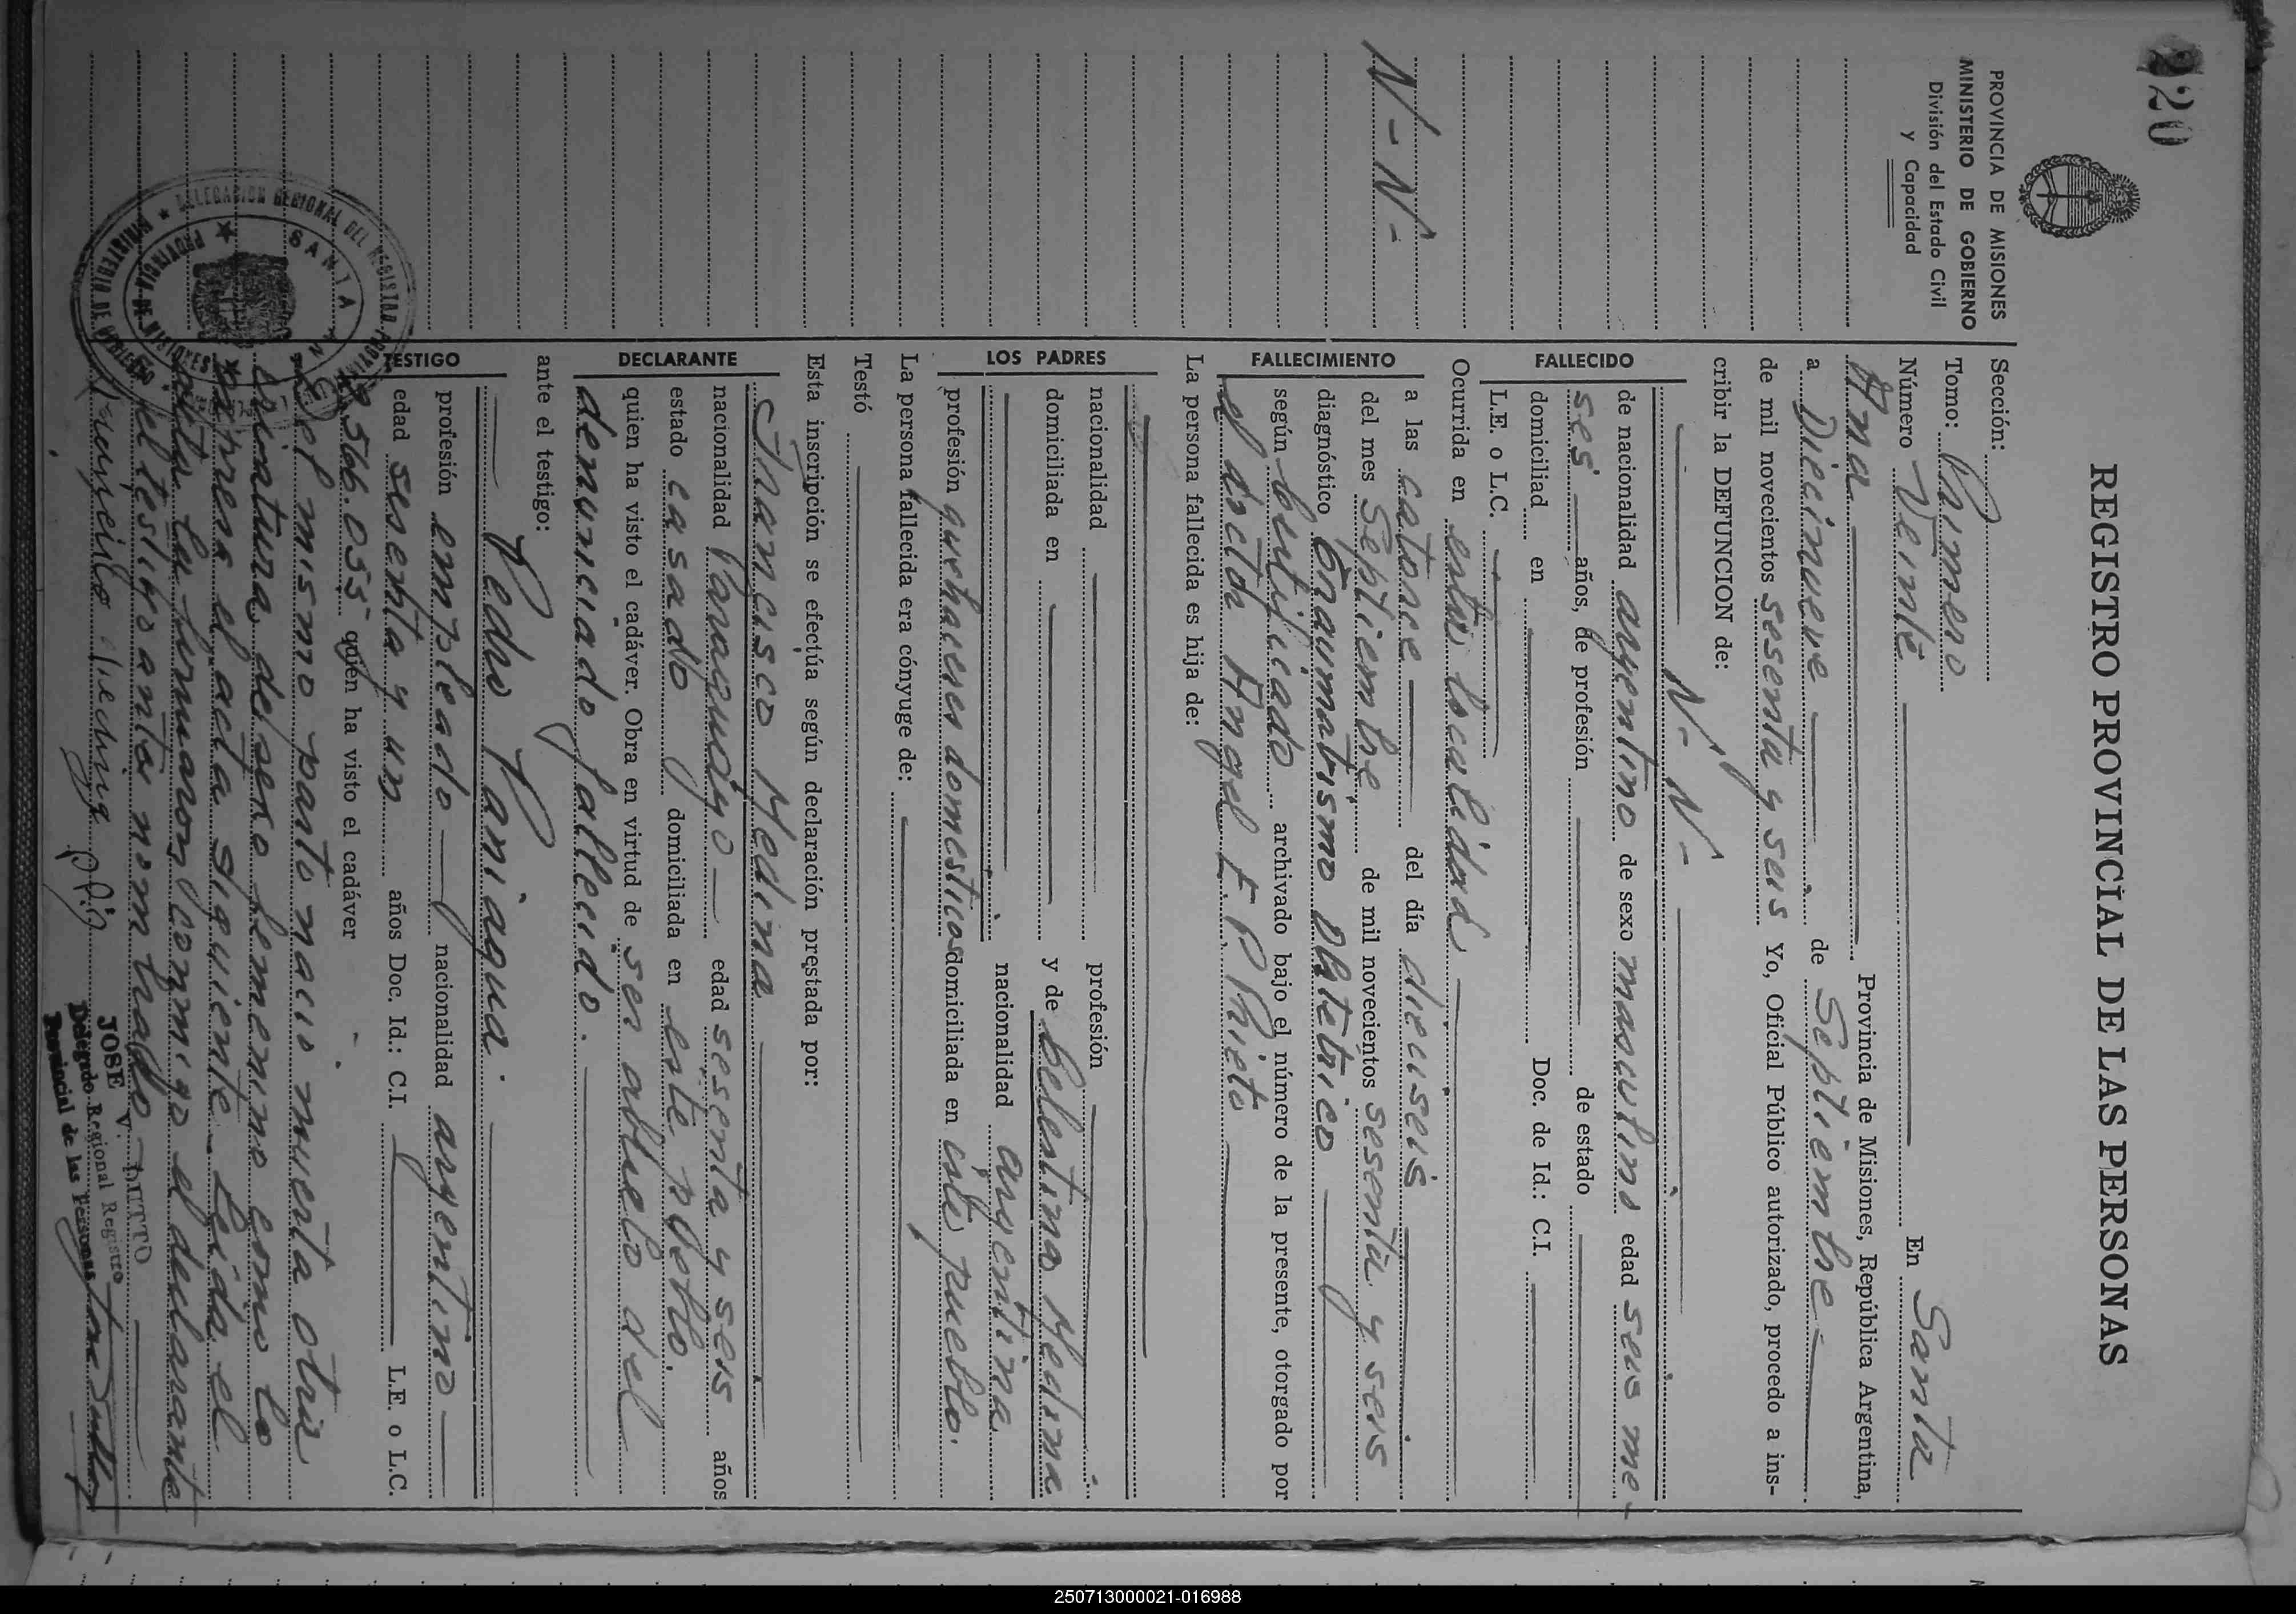 220
PROVINCIA DE MISIONES
MINISTERIO DE GOBIERNO
División del Estado Civil
y Capacidad
N-N-
REGISTRO PROVINCIAL DE LAS PERSONAS
Sección:
Tomo: Primero
Número Veinte En Santa
Ana Provincia de Misiones, República Argentina,
a Diecinueve de Septiembre
de mil novecientos sesenta y seis Yo, Oficial Público autorizado, procedo a ins-
cribir la DEFUNCION de:
N- N-
FALLECIDO
de nacionalidad argentino de sexo masculino edad seis me-
ses años, de profesión de estado
domiciliad en Doc. de Id.: C.I.
L.E. o L.C.
FALLECIMIENTO
Ocurrida en esta localidad
a las catorce del día dieciseis
del mes Septiembre de mil novecientos sesenta y seis
diagnóstico Traumatismo Obtetrico
según certificado archivado bajo el número de la presente, otorgado por
el doctor Angel E. P. Prieto
La persona fallecida es hija de:
LOS PADRES
nacionalidad profesión
domiciliada en y de Celestina Medina
nacionalidad argentina
profesión quehaceres domesticos domiciliada en este pueblo.
La persona fallecida era cónyuge de:
Testó
Esta inscripción se efectúa según declaración prestada por:
DECLARANTE
Francisco Medina
nacionalidad Paraguayo edad sesenta y seis años
estado casado domiciliada en este pueblo.
quien ha visto el cadáver. Obra en virtud de ser abuelo del
denunciado fallecido.
ante el testigo:
TESTIGO
Pedro Paniagua.
profesión empleado nacionalidad argentino
edad sesenta y un años Doc. Id.: C.I. L.E. o L.C.
566.035 quién ha visto el cadáver
el mismo parto nacio muerta otra
criatura de sexo femenino como lo
expresa el acta siguiente. Leida el
acta la firmaron conmigo el declarante
y el testigo antes nombrado
Francisco Medina
JOSE V. DUTTO
Delegado Regional Registro
Provincial de las Personas
DELEGACION REGIONAL DEL REGISTRO
SANTA ANA
PROVINCIA DE MISIONES
MINISTERIO DE GOBIERNO
250713000021-016988